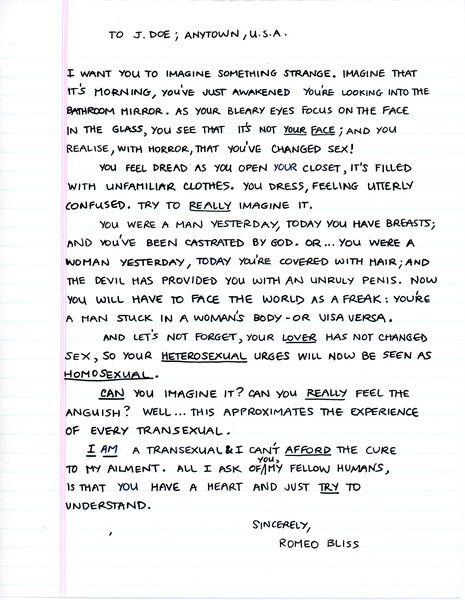 TO J. DOE; ANYTOWN, U.S.A.
I WANT YOU TO IMAGINE SOMETHING STRANGE. IMAGINE THAT
IT'S MORNING, YOU'VE JUST AWAKENED YOU'RE LOOKING INTO THE
BATHROOM MIRROR. AS YOUR BLEARY EYES FOCUS ON THE FACE
IN THE GLASS, YOU SEE THAT IT'S NOT YOUR FACE; AND YOU
REALISE, WITH HORROR, THAT YOU'VE CHANGED SEX!
YOU FEEL DREAD AS YOU OPEN YOUR CLOSET, IT'S FILLED
WITH UNFAMILIAR CLOTHES. YOU DRESS, FEELING UTTERLY
CONFUSED. TRY TO REALLY IMAGINE IT.
YOU WERE A MAN YESTERDAY, TODAY YOU HAVE BREASTS;
AND YOU'VE BEEN CASTRATED BY GOD. OR... YOU WERE A
WOMAN YESTERDAY, TODAY YOU'RE COVERED WITH HAIR; AND
THE DEVIL HAS PROVIDED YOU WITH AN UNRULY PENIS. NOW
YOU WILL HAVE TO FACE THE WORLD AS A FREAK: YOU'RE
A MAN STUCK IN A WOMAN'S BODY - OR VISA VERSA.
AND LET'S NOT FORGET, YOUR LOVER HAS NOT CHANGED
SEX, SO YOUR HETEROSEXUAL URGES WILL NOW BE SEEN AS
HOMOSEXUAL.
CAN YOU IMAGINE IT? CAN YOU REALLY FEEL THE
ANGUISH? WELL... THIS APPROXIMATES THE EXPERIENCE
OF EVERY TRANSEXUAL.
I AM A TRANSEXUAL & I CAN'T AFFORD THE CURE
TO MY AILMENT. ALL I ASK OF YOU, MY FELLOW HUMANS,
IS THAT YOU HAVE A HEART AND JUST TRY TO
UNDERSTAND.
SINCERELY,
ROMEO BLISS